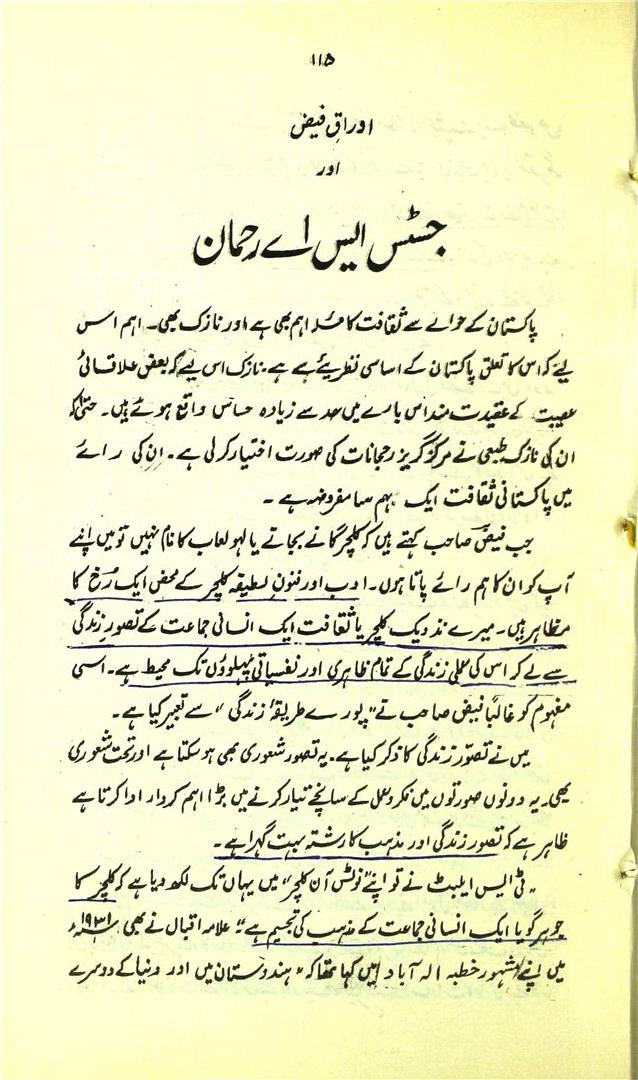 ۱۱۵
اوراقِ فیض
اور
جسٹس ایس اے رحمان
پاکستان کے حوالے سے ثقافت کا مسئلہ اہم بھی ہے اور نازک بھی۔ اہم اس
لیے کہ اس کا تعلق پاکستان کے اساسی نظریئے سے ہے۔ نازک اس لیے کہ بعض علاقائی
عصبیت کے عقیدت مند اس بارے میں حد سے زیادہ حساس واقع ہوئے ہیں۔ حتیٰ کہ
ان کی نازک طبعی نے مرکز گریز رجحانات کی صورت اختیار کر لی ہے۔ ان کی رائے
میں پاکستانی ثقافت ایک مبہم سا مفروضہ ہے ۔
جب فیضؔ صاحب کہتے ہیں کہ کلچر گانے بجانے یا لہو لعاب کا نام نہیں تو میں اپنے
آپ کو ان کا ہم رائے پاتا ہوں۔ ادب اور فنونِ لطیفہ کلچر کے محض ایک رُخ کا
مظاہر ہیں۔ میرے نزدیک کلچر یا ثقافت ایک انسانی جماعت کے تصورِ زندگی
سے لے کر اس کی عملی زندگی کے تمام ظاہری اور نفسیاتی پہلوؤں تک محیط ہے۔ اسی
مفہوم کو غالباً فیض صاحب نے "پورے طریقۂ زندگی" سے تعبیر کیا ہے۔
میں نے تصوّرِ زندگی کا ذکر کیا ہے۔ یہ تصور شعوری بھی ہو سکتا ہے اور تحت شعوری
بھی۔ یہ دونوں صورتوں میں فکر و عمل کے سانچے تیار کرنے میں بڑا اہم کردار ادا کرتا ہے
ظاہر ہے کہ تصورِ زندگی اور مذہب کا رشتہ بہت گہرا ہے۔
ٹی ایس ایلیٹ نے تو اپنے "نوٹس آن کلچر" میں یہاں تک لکھ دیا ہے کہ کلچر کا
جوہر گویا ایک انسانی جماعت کے مذہب کی تجسیم ہے" علامہ اقبال نے بھی ۱۹۳۱ء
میں اپنے مشہور خطبہ الہ آباد میں کہا تھا کہ "ہندوستان میں اور دنیا کے دوسرے